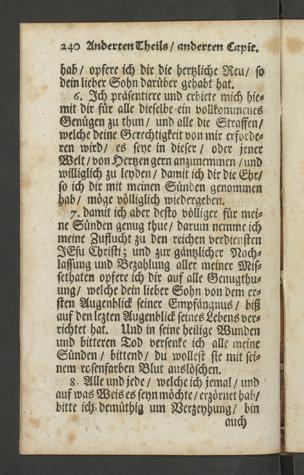 240 Anderten Theils / anderten Capit.
hab / opfere ich dir die hertzliche Reu / so
dein lieber Sohn darüber gehabt hat.
6. Ich präsentiere und erbiete mich hie-
mit dir für alle dieselbe ein vollkommenes
Genügen zu thun / und alle die Straffen /
welche deine Gerechtigkeit von mir erforde-
ren wird / es seye in dieser / oder jener
Welt / von Hertzen gern anzunemmen / und
williglich zu leyden / damit ich dir die Ehr /
so ich dir mit meinen Sünden genommen
hab / möge völliglich wiedergeben.
7. damit ich aber desto völliger für mei-
ne Sünden genug thue / darum nemme ich
meine Zuflucht zu den reichen verdiensten
JEsu Christi; und zur gäntzlicher Nach-
lassung und Bezahlung aller meiner Mis-
sethaten opfere ich dir auf alle Genugthu-
ung / welche dein lieber Sohn von dem er-
sten Augenblick seiner Empfängnus / biß
auf den letzten Augenblick seines Lebens ver-
richtet hat. Und in seine heilige Wunden
und bitteren Tod versenke ich alle meine
Sünden / bittend / du wollest sie mit sei-
nem rosenfarben Blut auslöschen.
8. Alle und jede / welche ich jemal / und
auf was Weis es seyn möchte / erzörnet hab /
bitte ich demüthig um Verzeyhung / bin
auch